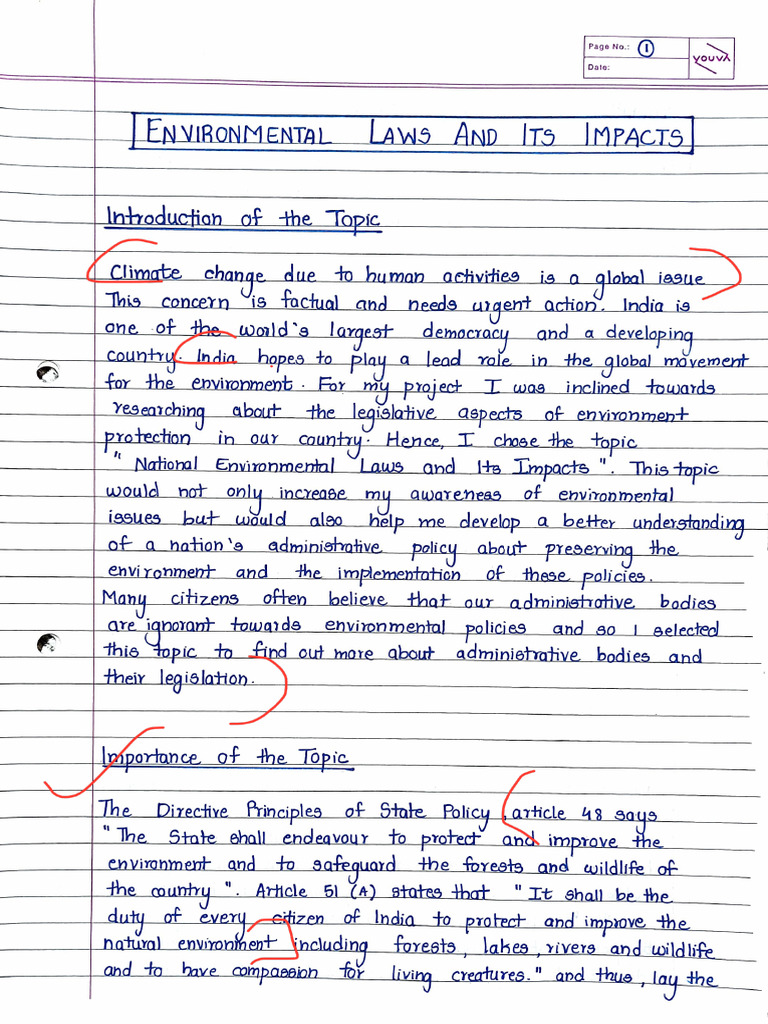 Page No.: 1
youva
Date:
ENVIRONMENTAL LAWS AND ITS IMPACTS
Introduction of the Topic
Climate change due to human activities is a global issue
This concern is factual and needs urgent action. India is
one of the world's largest democracy and a developing
country. India hopes to play a lead role in the global movement
for the environment. For my project I was inclined towards
researching about the legislative aspects of environment
protection in our country. Hence, I chose the topic
" National Environmental Laws and Its Impacts ". This topic
would not only increase my awareness of environmental
issues but would also help me develop a better understanding
of a nation's administrative policy about preserving the
environment and the implementation of these policies.
Many citizens often believe that our administrative bodies
are ignorant towards environmental policies and so I selected
this topic to find out more about administrative bodies and
their legislation.
Importance of the Topic
The Directive Principles of State Policy , article 48 says
" The State shall endeavour to protect and improve the
environment and to safeguard the forests and wildlife of
the country ". Article 51 (A) states that " It shall be the
duty of every citizen of India to protect and improve the
natural environment including forests, lakes, rivers and wildlife
and to have compassion for living creatures." and thus, lay the